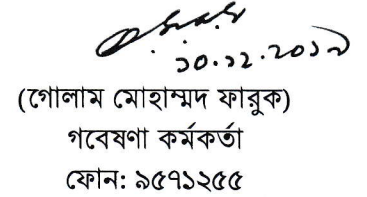 ১০.১২.২০১৭
(গোলাম মোহাম্মদ ফারুক)
গবেষণা কর্মকর্তা
ফোন: ৯৫৭১২৫৫